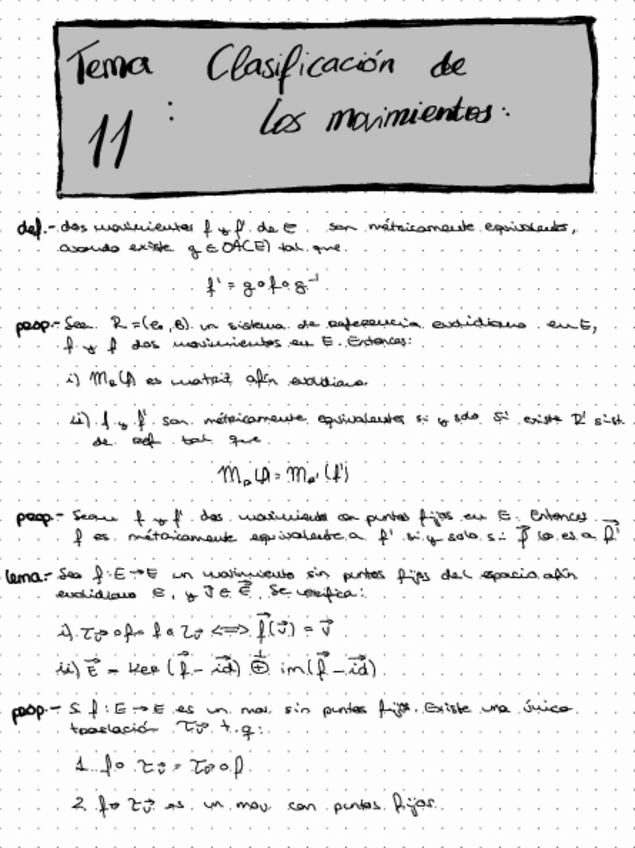 Tema 11: Clasificación de
los movimientos.
def.- dos movimientos f y f' de E son métricamente equivalentes,
cuando existe g ∈ OA(E) tal que
f' = g∘f∘g⁻¹
prop.- Sea R = (e₀, B) un sistema de referencia euclidiano en E,
f y f dos movimientos en E. Entonces:
i) M_R(f) es matriz afín euclidiana
ii) f y f' son métricamente equivalentes si y solo si existe R' sist.
de ref tal que
M_R(f) = M_R'(f')
prop.- Sean f y f' dos movimientos con puntos fijos en E. Entonces
f es métricamente equivalente a f' si y solo si f⃗ lo es a f⃗'
lema.- Sea f: E→E un movimiento sin puntos fijos del espacio afín
euclidiano E, y v⃗ ∈ E⃗. Se verifica:
i) τ_v⃗ ∘ f = f ∘ τ_v⃗ ⟺ f⃗(v⃗) = v⃗
ii) E⃗ = Ker (f⃗ - id⃗) ⊕^⊥ im(f⃗ - id⃗)
prop.- Si f: E→E es un mov. sin puntos fijos. Existe una única
traslación τ_v⃗ t.q:
1. f∘τ_v⃗ = τ_v⃗∘f
2. f∘τ_v⃗ es un mov con puntos fijos.